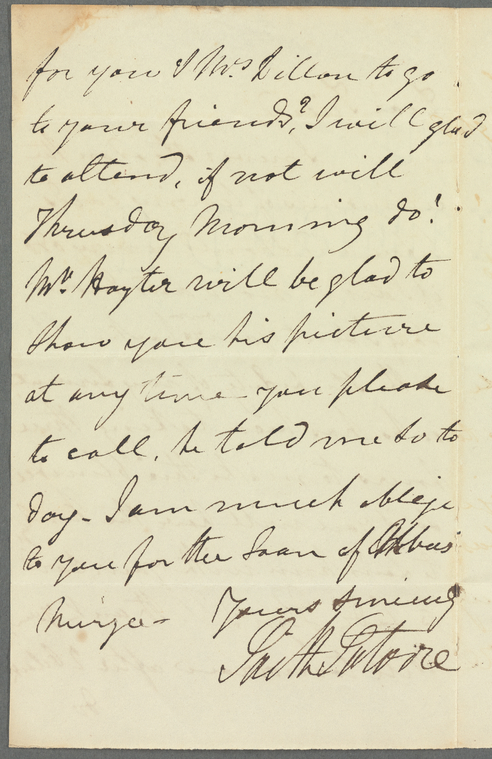 for you & Mrs Dillon to go
to your friends?, I will glad
to attend, if not will
Thrusday Morning do!
Mr. Hayter will be glad to
show you his picture
at any time you please
to call. he told me so to
day - I am much oblige
to you for the Loan of Abbas
Mirza - Yours